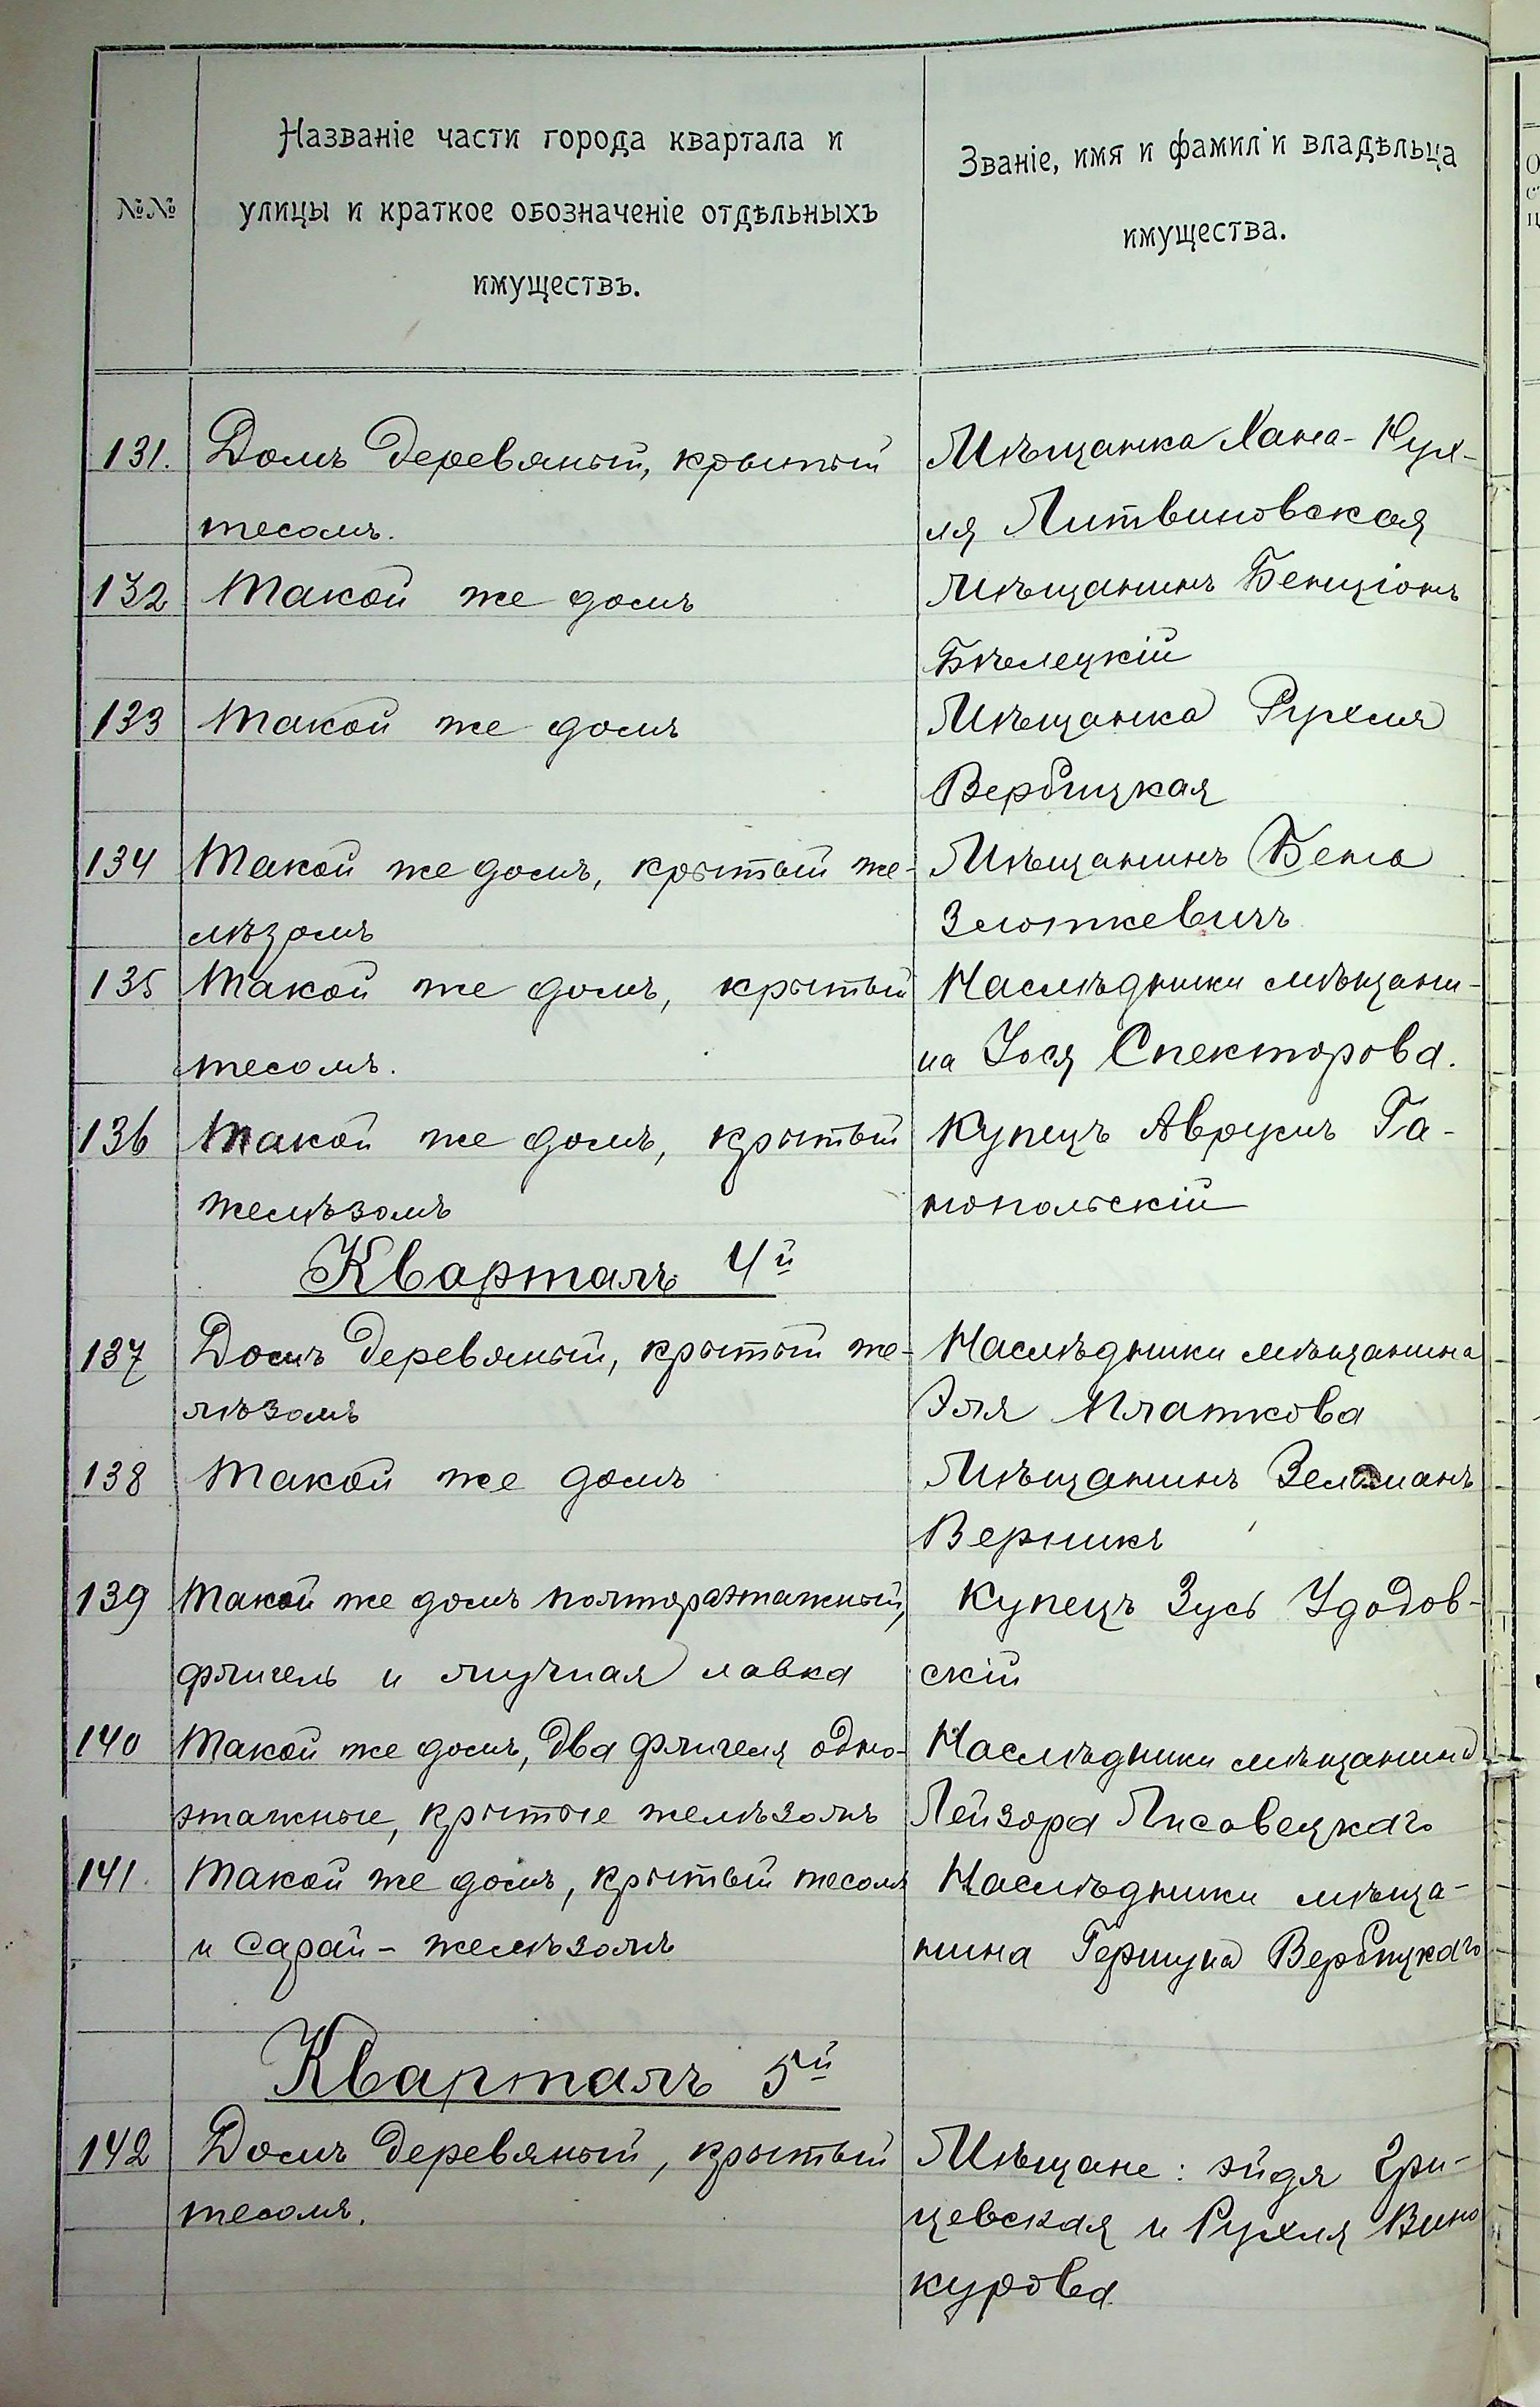 №№
Названіе части города квартала и
улицы и краткое обозначеніе отдѣльныхъ
имуществъ.
Званіе, имя и фамиліи владѣльца
имущества.
131. Домъ деревяный, крытый Мѣщанка Хана-Рух-
тесомъ. ля Литвиновская
132 Такой же домъ Мѣщанинъ Бенціонъ
Бѣлецкій
133 Такой же домъ Мѣщанка Рухля
Вербицкая
134 Такой же домъ, крытый же- Мѣщанинъ Беня
лѣзомъ Злоткевичъ
135 Такой же домъ, крытый Наслѣдники мѣщани-
тесомъ. на Уося Спекторова.
136 Такой же домъ, крытый Купецъ Аврумъ Га-
желѣзомъ нопольскій
Кварталъ 4й
137 Домъ деревяный, крытый же- Наслѣдники мѣщанина
лѣзомъ Эля Платкова
138 Такой же домъ Мѣщанинъ Зельманъ
Верникъ
139 Такой же домъ полтораэтажный, Купецъ Зусь Удодов-
флигель и мучная лавка скій
140 Такой же домъ, два флигеля одно- Наслѣдники мѣщанина
этажные, крытые желѣзомъ Лейзора Лисовецкаго
141. Такой же домъ, крытый тесомъ Наслѣдники мѣща-
и сарай - желѣзомъ нина Гершуна Вербицкаго
Кварталъ 5й
142 Домъ деревяный, крытый Мѣщане: Эйдя Гри-
тесомъ. цевская и Рухля Вино
курова